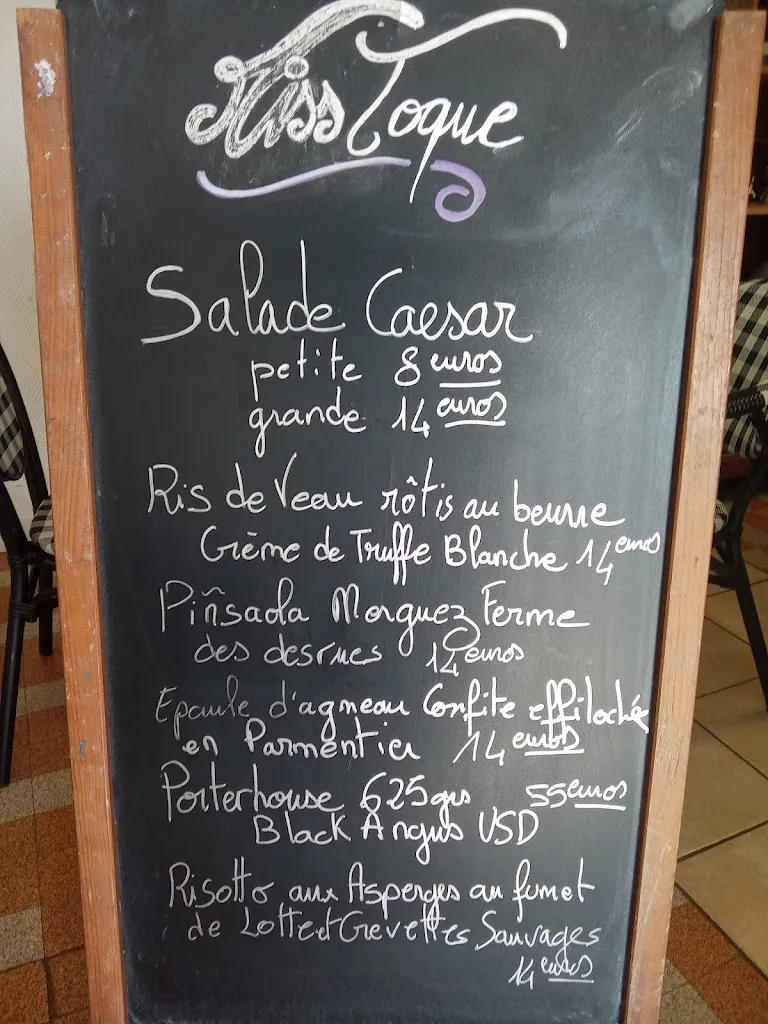 Miss Toque
Salade Caesar
petite 8 euros
grande 14 euros
Ris de Veau rôtis au beurre
Crème de Truffe Blanche 14 euros
Piñsaola Morguez Ferme
des desrues 14 euros
Epaule d'agneau Confite effilochée
en Parmentier 14 euros
Porterhouse 625grs 55 euros
Black Angus USD
Risotto aux Asperges au fumet
de Lotte et Crevettes Sauvages
14 euros